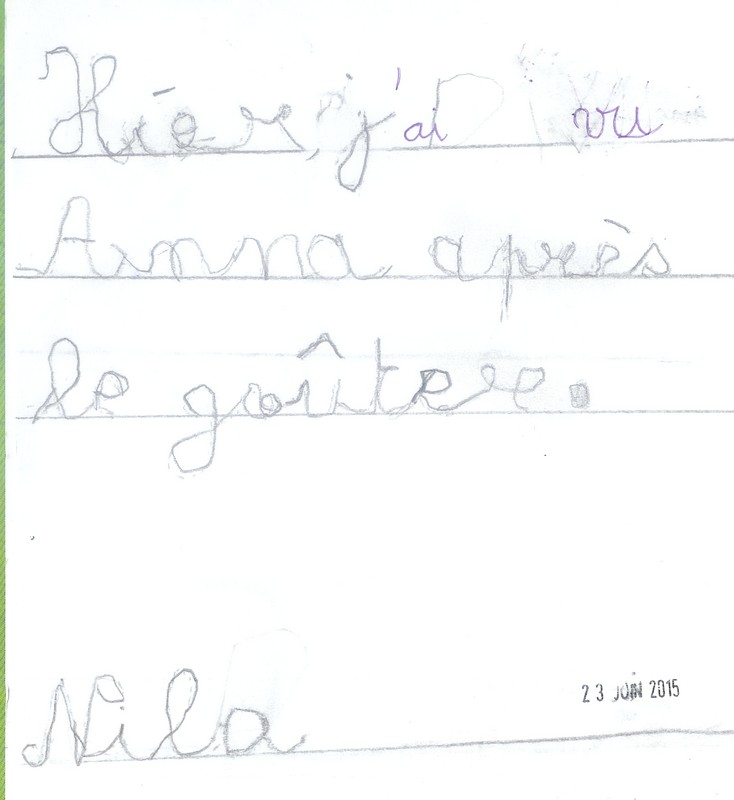 Hier j'ai vu
Anna après
le goûter.
Nila
23 JUIN 2015